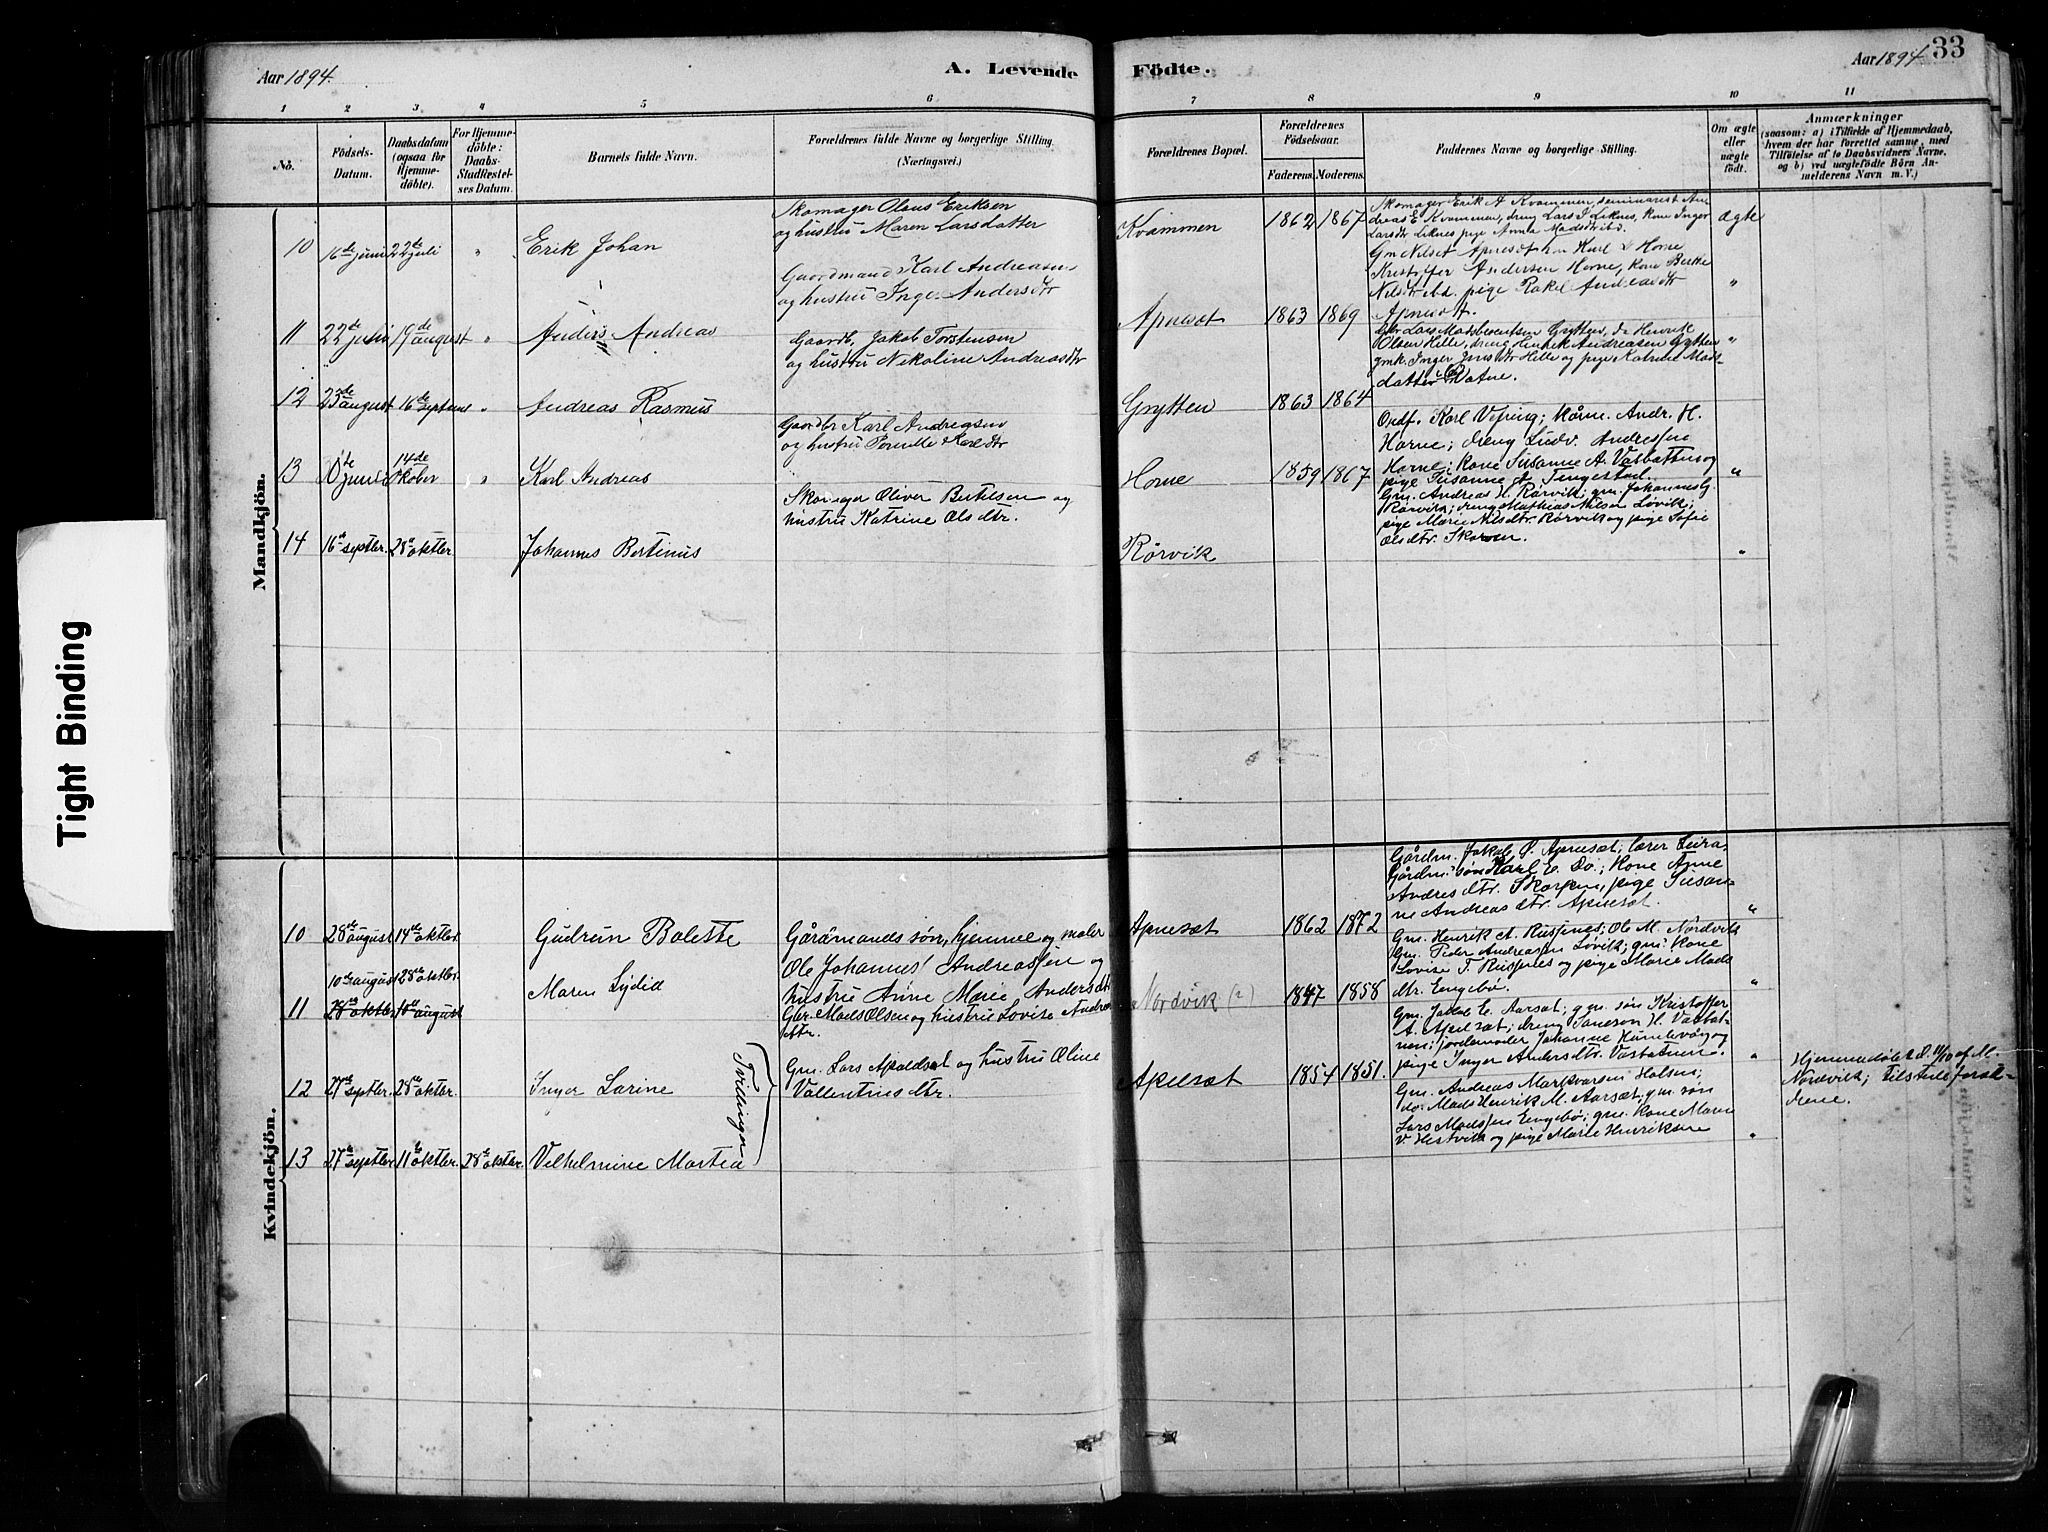 Aar 1894.
A. Levende
Födte.
Aar 1894
33
1 2 3 4 5 6 7 8 9 10 11
No.
Födsels-
Datum.
Daabsdatum
(ogsaa for
Hjemme-
døbte).
For Hjemme-
döbte:
Daabs-
Stadfæstel-
ses Datum.
Barnets fulde Navn.
Forældrenes fulde Navne og borgerlige Stilling
(Næringsvei).
Forældrenes Bopæl.
Forældrenes
Födselsaar.
Faderens. Moderens.
Faddernes Navne og borgerlige Stilling.
Om ægte
eller
uægte
födt.
Anmærkninger
(saasom: a) i Tilfælde af Hjemmedaab,
hvem der har forrettet samme, med
Tilföielse af to Daabsvidners Navne,
og b) ved uægtefödte Börn An-
melderens Navn m. V.)
Mandkjön.
10 16de juni 22de juli " Erik Johan
Skomager Olaus Eriksen
og hustru Maren Larsdatter
Kvammen 1862 1867
Skomager Erik A Kvammen, seminarist An-
dreas E Kvammen, dreng Lars I. Leknes, kone Inger
Larsdtr Leknes pige Anna Madsdtr ibd.
ægte
11 22de juli 19de august " Anders Andreas
Gaardmand Karl Andreasen
og hustru Inger Andersdtr
Apnesæt 1863 1869
Kristoffer Andersen Horne, kone Berthe
Nilsdtr ibd. pige Rakel Andreasdtr
Apnesæt.
"
12 23de august 16de septem " Andreas Rasmus
Gaardb. Jakob Torstensen
og hustru Nikoline Andreasdtr
Grytten 1863 1864
Gbr Lars Madsberentsen Grytten, do Henrik
Olsen Hille, dreng Henrik Andreasen Grytten
gmk. Inger Jensdtr Hille og pige Katrine Mads-
datter Vatne.
"
13 10de juni 14de Oktober " Karl Andreas
Gaardbr Karl Andreasen
og hustru Pernille Karlsdtr
Horne 1859 1867
Ordf. Karl Vefring; Andr. H.
Horne; dreng Ludv. Andressen
Horne; kone Susanne A. Vasbotten og
pige Susanne A. Tingestad.
"
14 16de septbr. 28de oktbr. Johannes Bertinus
Skomager Oliver Bertelsen og
hustru Katrine Olsdtr.
Rørvik
Gm. Andreas H. Rørvik; gm. Johannes G.
Rørvik; dreng Mathias Nilsen Løvik;
pige Marie Nilsdtr. Rørvik og pige Sofie
Olsdtr. Skorven.
"
Kvindekjön.
10 28de august 14de oktbr. Gudrun Bolette
Gårdmands søn, hjemme og maler
Ole Johannes Andreassen og
hustru Anne Marie Andersdtr
Apnesæt 1862 1872
Gårdm. Jakob O. Apnesæt; lærer Leira,
Gårdm. søn Karl E. Do.; Kone Agne
Andresdtr. Skorpen, pige Susan-
ne Andreasdtr. Apnesæt.
"
11 10de august 28de oktbr. Maren Lydia
28de oktbr 10de august
Gbr. Mads Olsen og hustru Lovise Andreas
dtr.
Nordvik (2) 1847 1858
Gm. Henrik A. Russenes; Ole M. Nordvik
Gm. Peder Andreassen Løvik; gm. kone
Lovise T. Russenes og pige Marie Mads
dtr. Engebø.
"
12 27de septbr. 28de oktbr. Inger Larine
Tvillinger
Gm. Lars Apaldset og hustru Oline
Vallentinsdtr.
Apelsæt 1854 1851.
Gm. Jakob E. Aarsæt; gm. søn Kristoffer
A. Apelsæt; dreng H. Vasbot-
nen; jordemoder Johanne og
pige Inger Andersdtr. Vasbotnen.
"
Hjemmedøbt d. 11/10 af M.
Nordvik; Tilstede foræl-
drene.
13 27de septbr. 11te oktbr. 28de oktbr. Vilhelmine Martea
Gm. Andreas Markvarsen Holsen;
do. Mads Henrik M. Aarsæt; gm. søn
Lars Madssen Engebø; gm. kone Maren
V. Hestvik og pige Marie Henriksen
"
Tight Binding